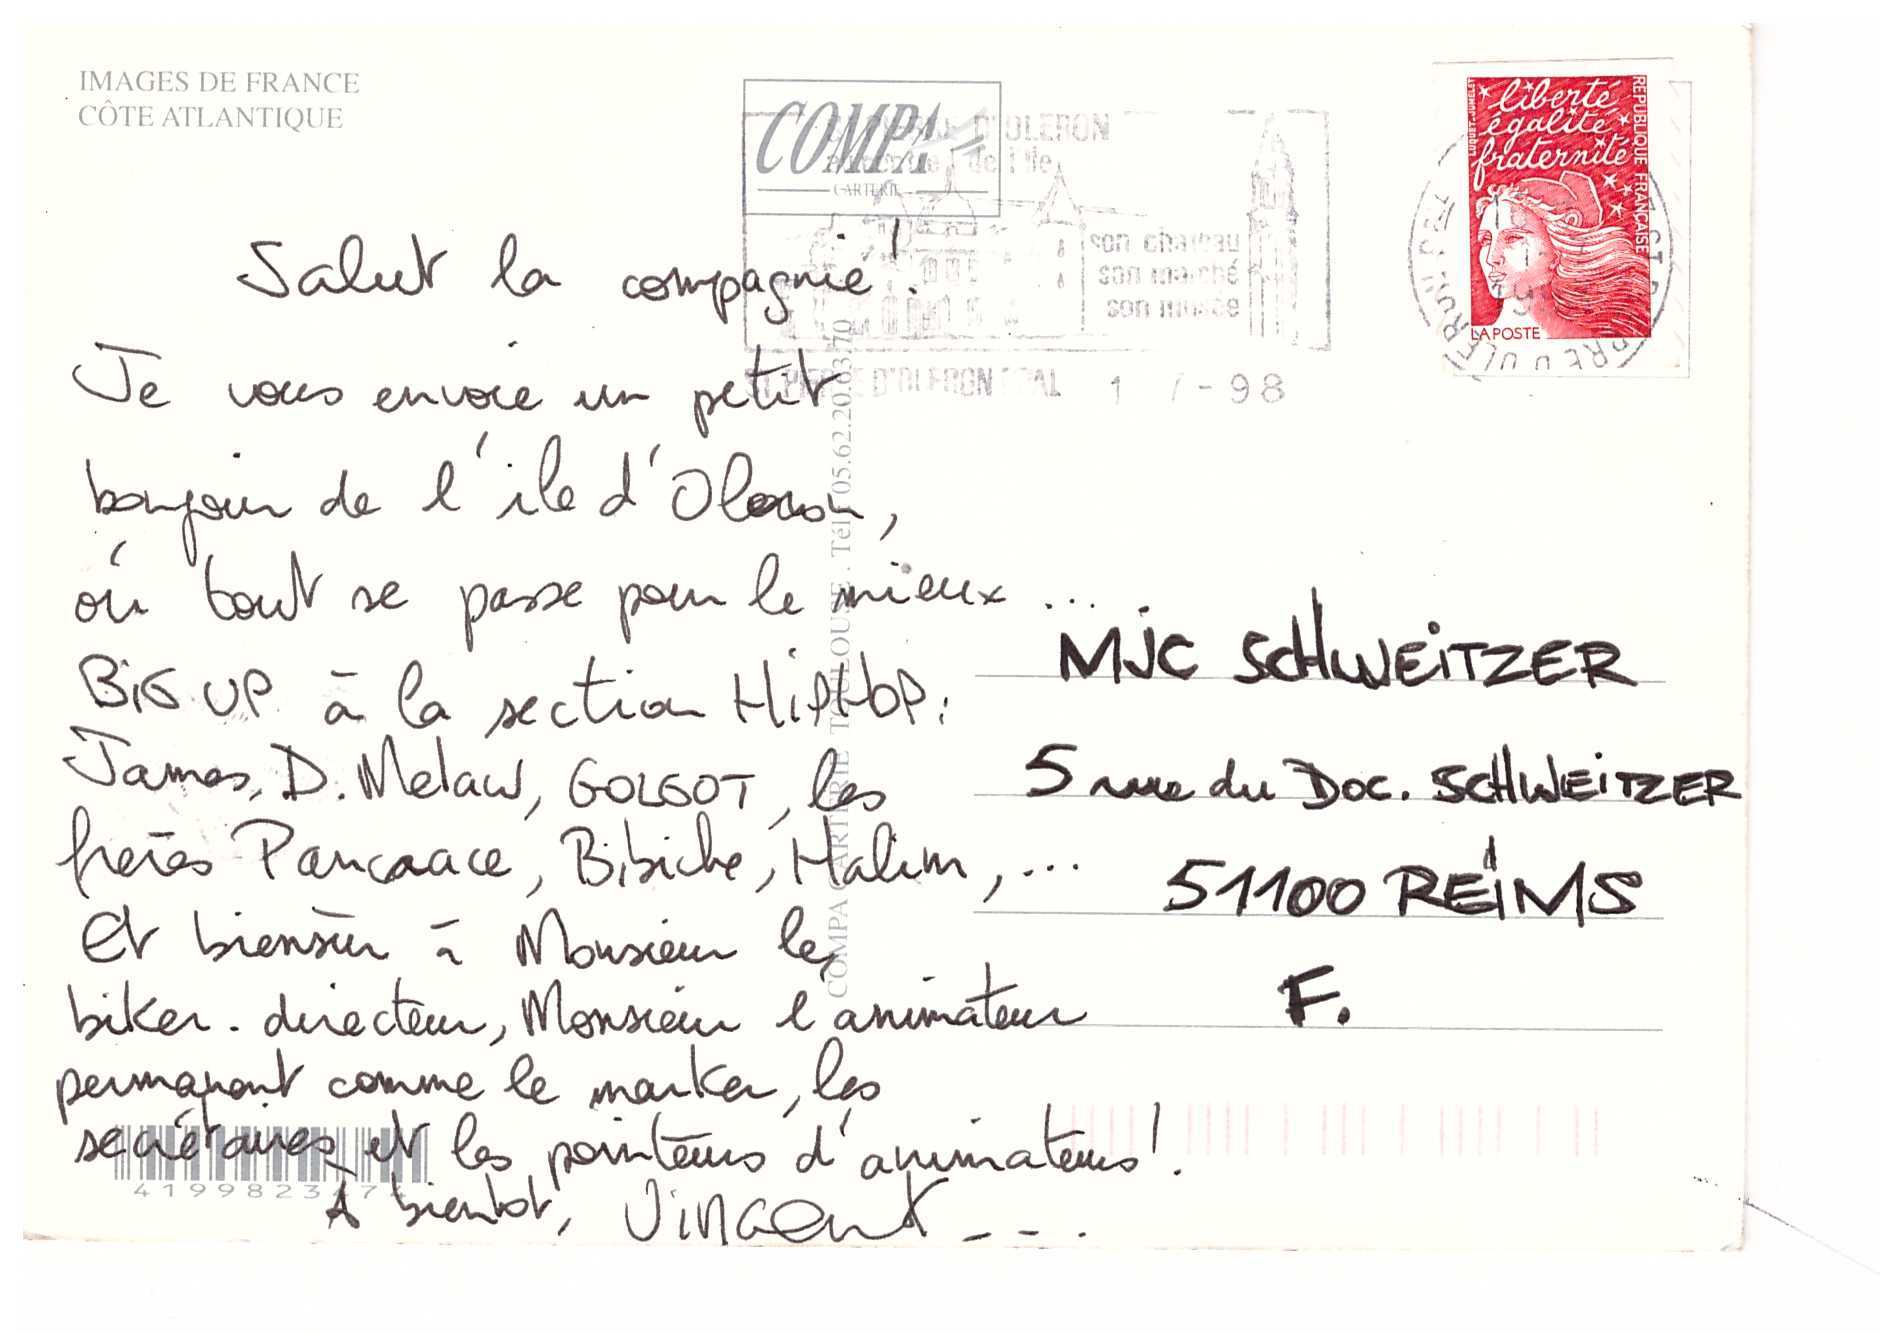 IMAGES DE FRANCE
CÔTE ATLANTIQUE
COMPA
CARTERIE
D'OLERON
de l'île
son chateau
son marché
son musée
ST PIERRE D'OLERON PAL 1 7-98
liberté
égalité
fraternité
REPUBLIQUE FRANÇAISE
LA POSTE
Salut la compagnie !
Je vous envoie un petit
bonjour de l'ile d'Oleron,
où tout se passe pour le mieux ...
BIG UP à la section HIPHOP :
James, D. Melaw, GOLGOT, les
frères Pancrace, Bibiche, Halim, ...
Et biensûr à Monsieur le
biker-directeur, Monsieur l'animateur
permanent comme le marker, les
secrétaires et les pointeurs d'animateurs !
A bientot, Vincent ...
COMPA CARTERIE TOULOUSE . Tél. 05.62.20.03.70
MJC SCHWEITZER
5 rue du Doc. SCHWEITZER
51100 REIMS
F.